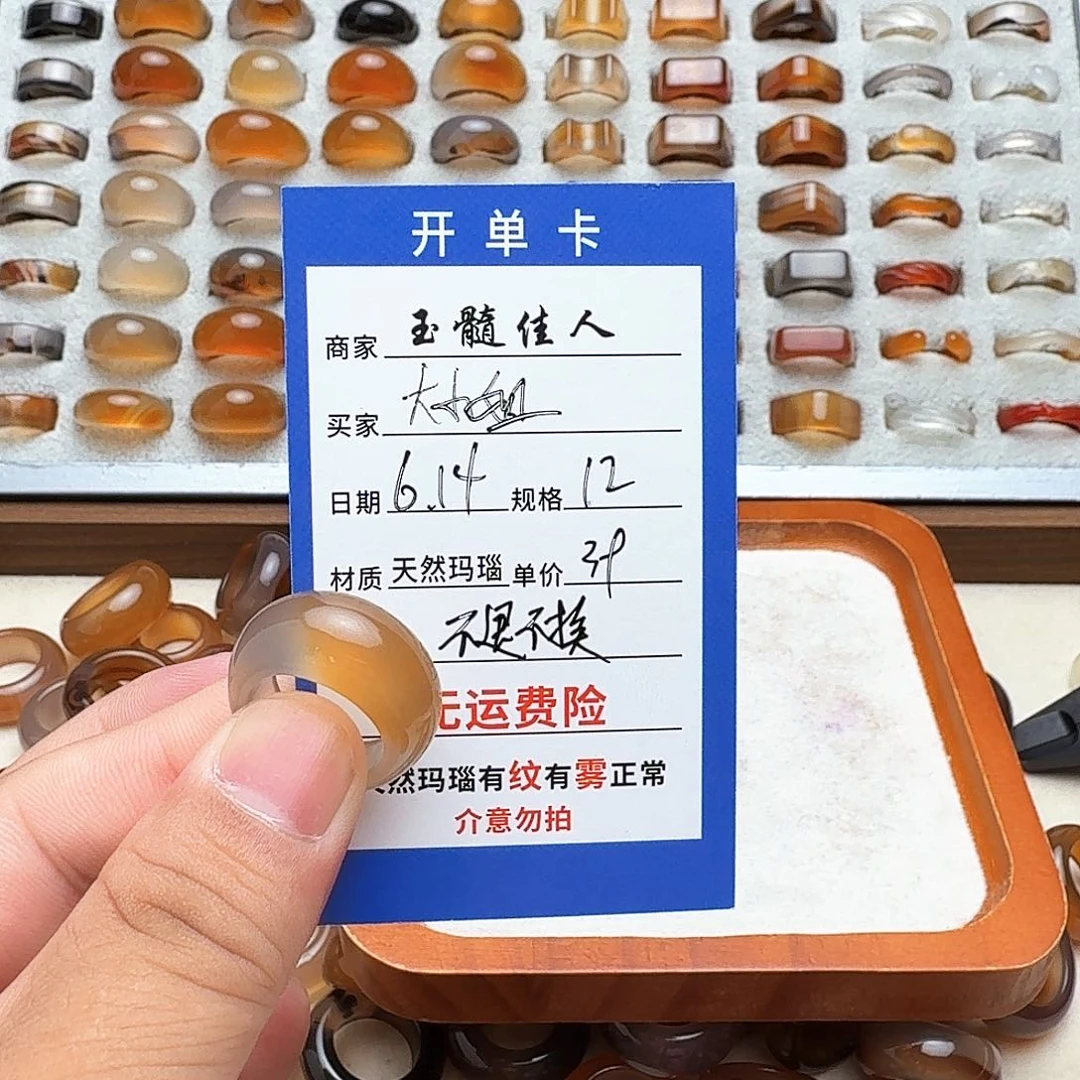 开单卡
商家 玉髓佳人
买家 大小姐
日期 6.14 规格 12
材质 天然玛瑙 单价 39
不退不换
无运费险
天然玛瑙有纹有雾正常
介意勿拍